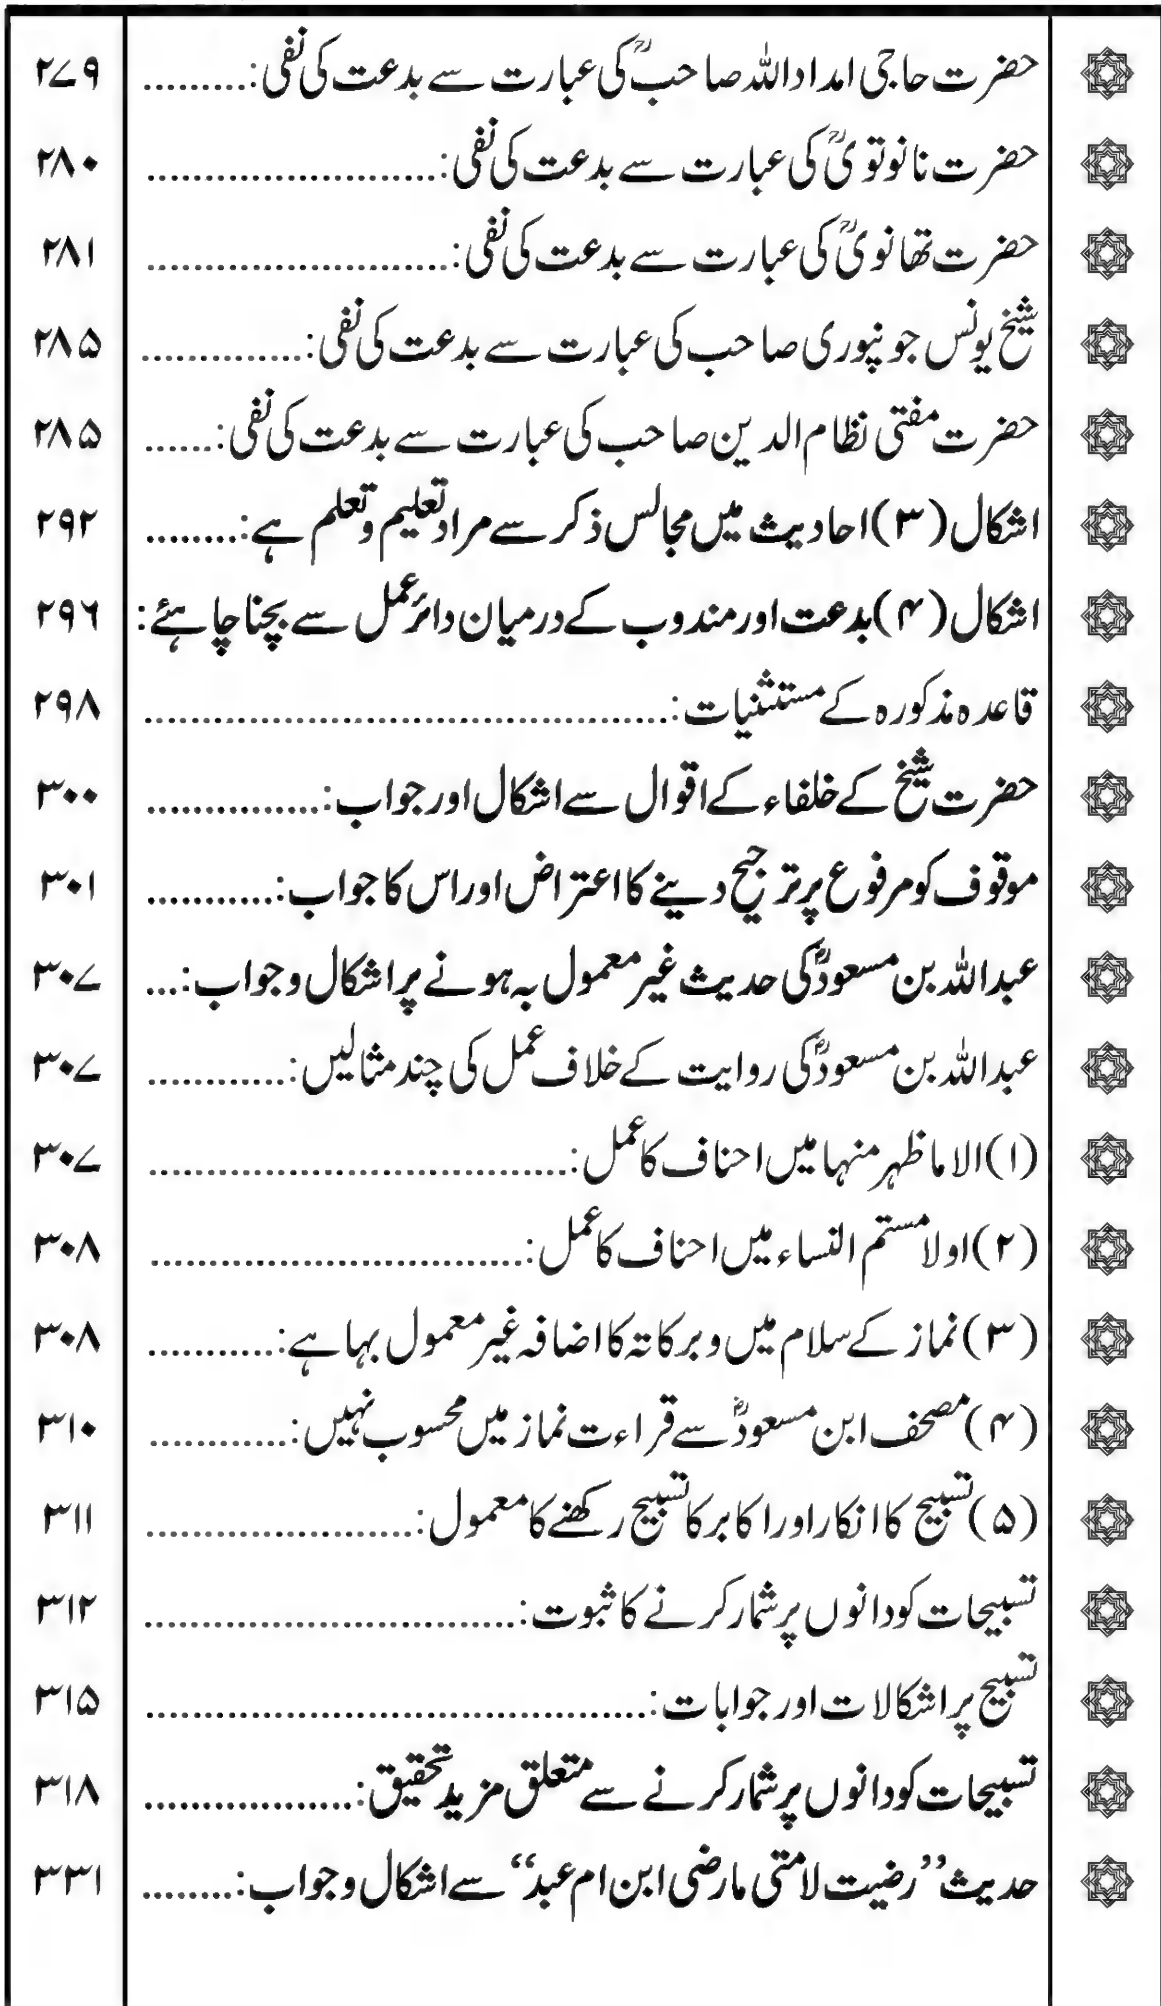 حضرت حاجی امداد اللہ صاحبؒ کی عبارت سے بدعت کی نفی:.......... ۲۷۹
حضرت نانوتویؒ کی عبارت سے بدعت کی نفی:.......................... ۲۸۰
حضرت تھانویؒ کی عبارت سے بدعت کی نفی:........................... ۲۸۱
شیخ یونس جونپوری صاحب کی عبارت سے بدعت کی نفی:.............. ۲۸۵
حضرت مفتی نظام الدین صاحب کی عبارت سے بدعت کی نفی:...... ۲۸۵
اشکال (۳) احادیث میں مجالس ذکر سے مراد تعلیم وتعلم ہے:......... ۲۹۲
اشکال (۴) بدعت اور مندوب کے درمیان دائر عمل سے بچنا چاہئے: ۲۹۶
قاعدہ مذکورہ کے مستثنیات:............................................... ۲۹۸
حضرت شیخ کے خلفاء کے اقوال سے اشکال اور جواب:................ ۳۰۰
موقوف کو مرفوع پر ترجیح دینے کا اعتراض اور اس کا جواب:............ ۳۰۱
عبداللہ بن مسعودؓ کی حدیث غیر معمول بہ ہونے پر اشکال وجواب:... ۳۰۷
عبداللہ بن مسعودؓ کی روایت کے خلاف عمل کی چند مثالیں:............. ۳۰۷
(۱) الا ماظہر منہا میں احناف کا عمل:...................................... ۳۰۷
(۲) اولا مستم النساء میں احناف کا عمل:.................................. ۳۰۸
(۳) نماز کے سلام میں وبرکاتہ کا اضافہ غیر معمول بہا ہے:............ ۳۰۸
(۴) مصحف ابن مسعودؓ سے قراءت نماز میں محسوب نہیں:............. ۳۱۰
(۵) تسبیح کا انکار اور اکابر کا تسبیح رکھنے کا معمول:........................ ۳۱۱
تسبیحات کو دانوں پر شمار کرنے کا ثبوت:.................................. ۳۱۲
تسبیح پر اشکالات اور جوابات:.............................................. ۳۱۵
تسبیحات کو دانوں پر شمار کرنے سے متعلق مزید تحقیق:................... ۳۱۸
حدیث ’’رضیت لامتی مارضی ابن ام عبد‘‘ سے اشکال وجواب:......... ۳۳۱